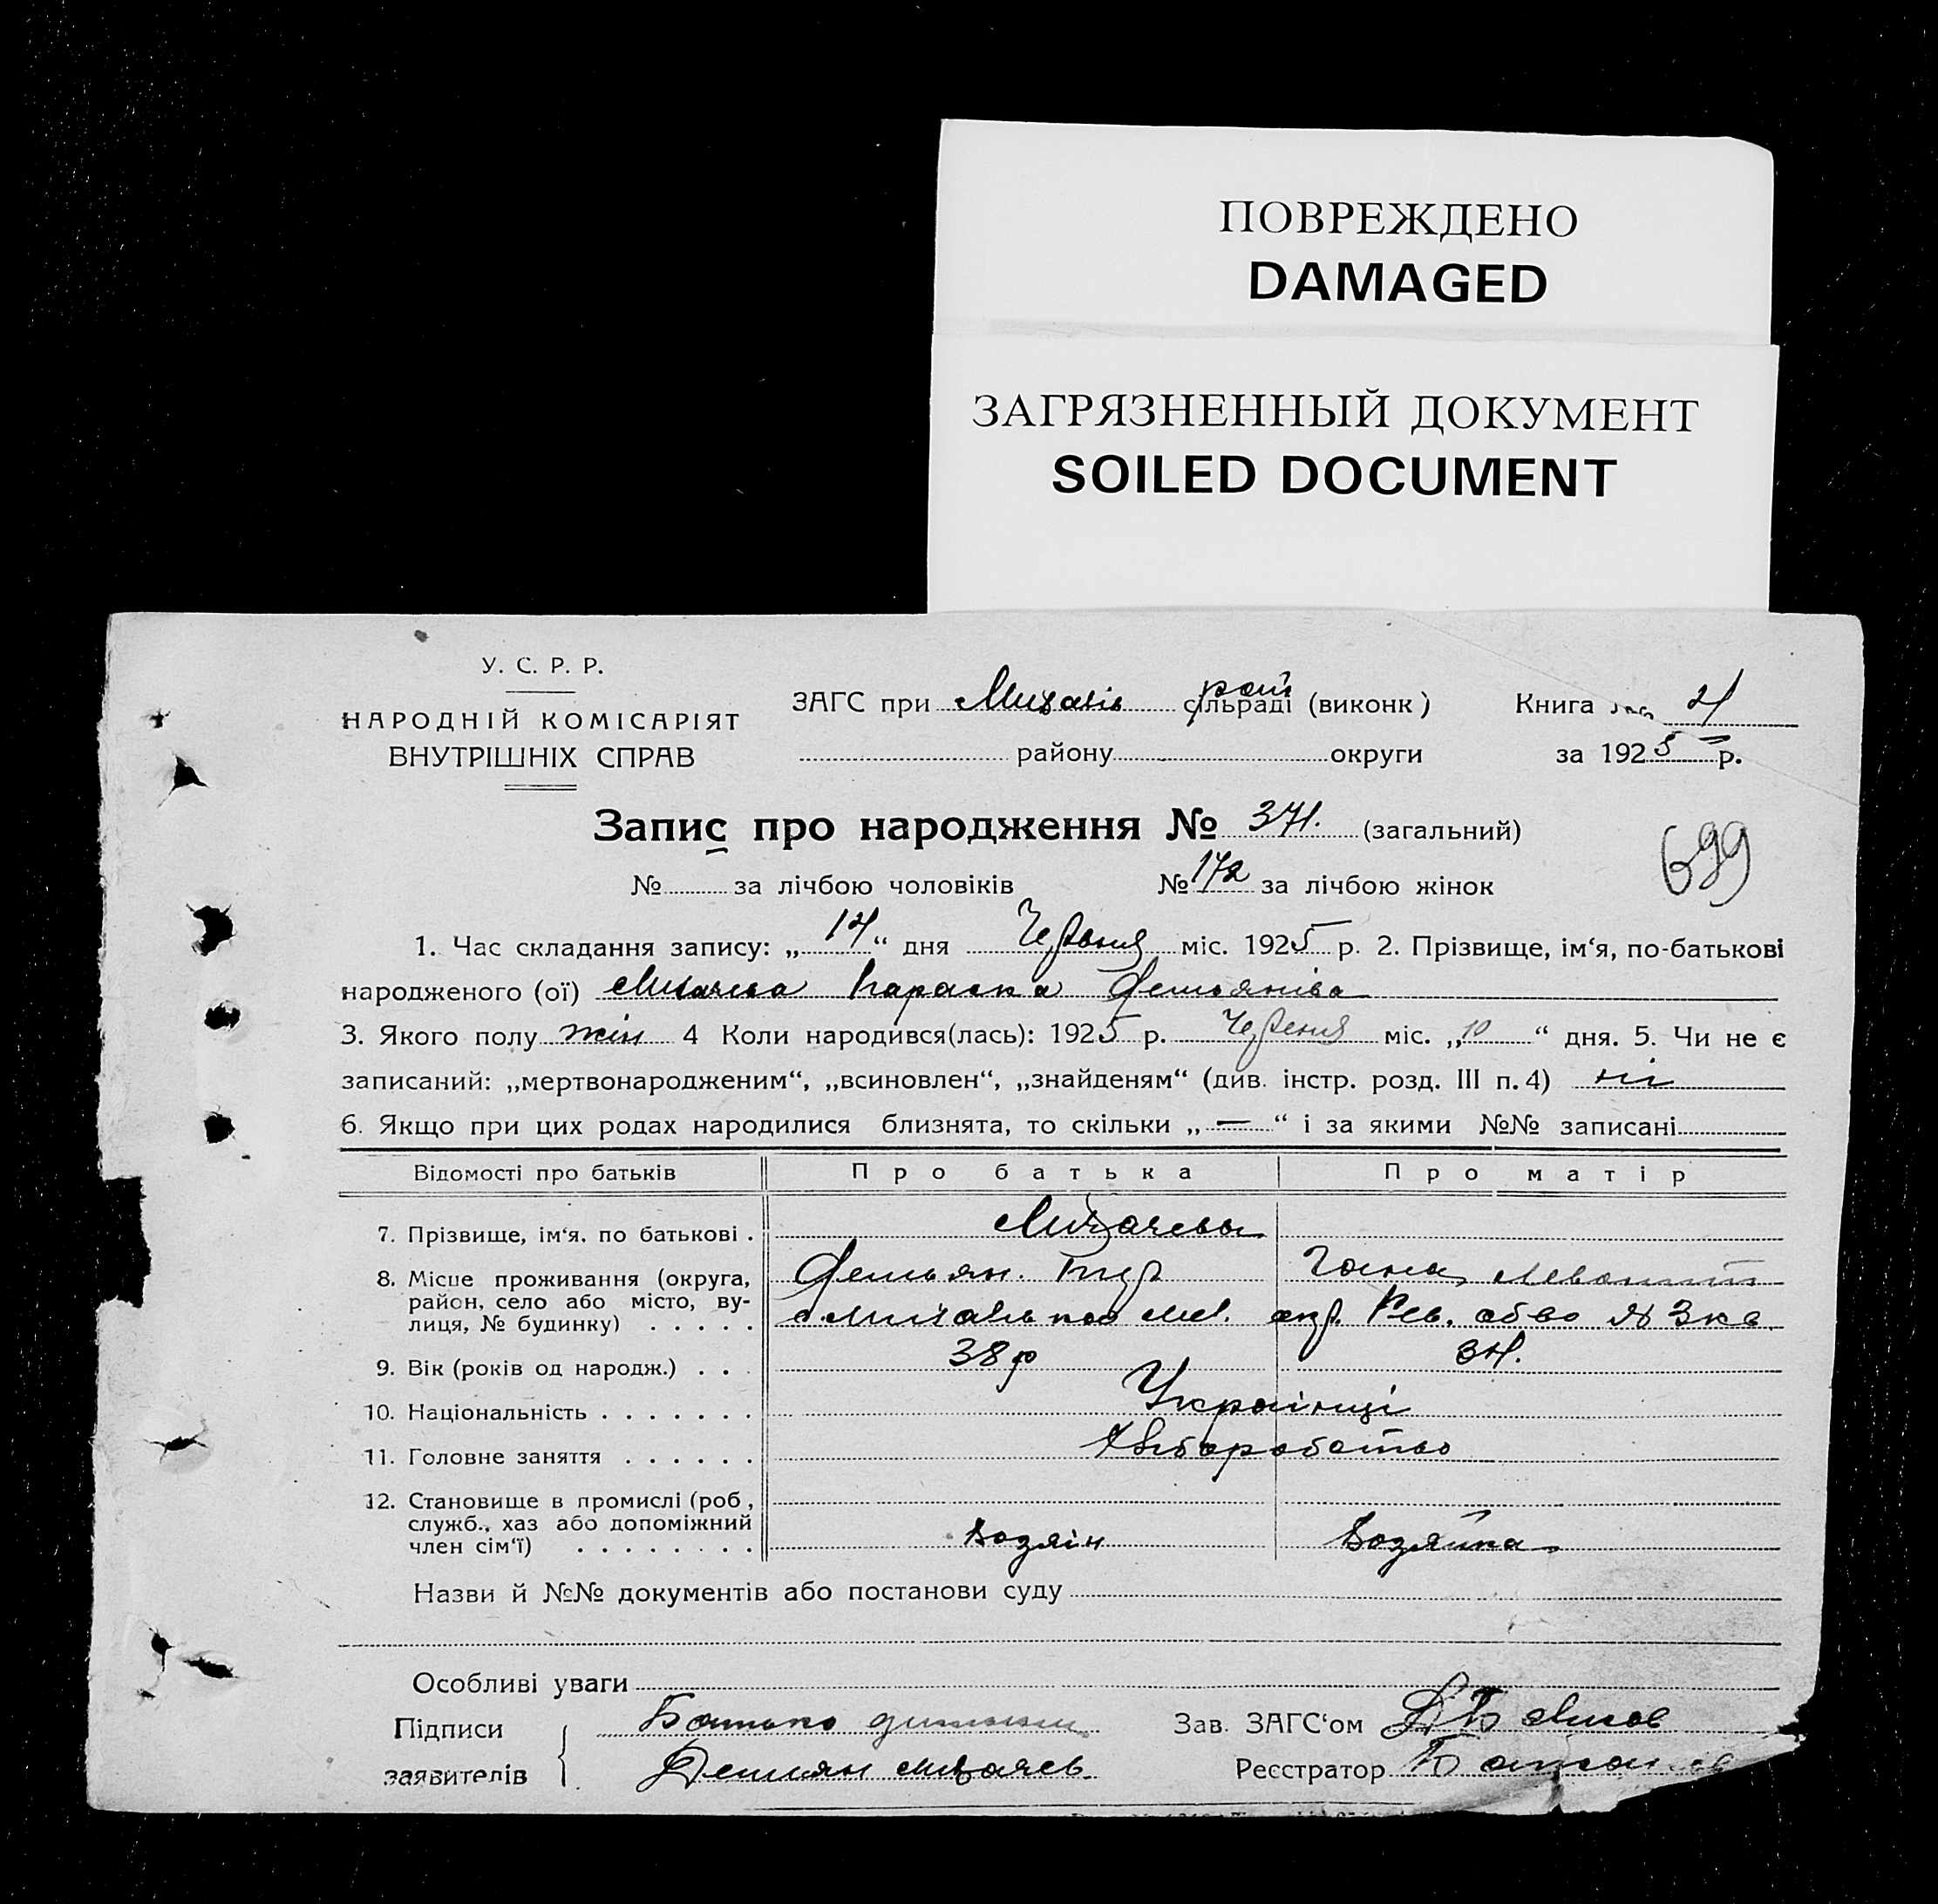 ПОВРЕЖДЕНО
DAMAGED
ЗАГРЯЗНЕННЫЙ ДОКУМЕНТ
SOILED DOCUMENT
У. С. Р. Р.
НАРОДНІЙ КОМІСАРІЯТ
ВНУТРІШНІХ СПРАВ
ЗАГС при рай сільраді (виконк)
району округи
Книга
за 1925 р.
Запис про народження № 371. (загальний)
699
№ за лічбою чоловіків № 172 за лічбою жінок
1. Час складання запису: „14“ дня Червня міс. 1925 р. 2. Прізвище, ім‘я, по-батькові
народженого (ої) Параска Демьянівa
3. Якого полу жін 4 Коли народився(лась): 1925 р. Червня міс. „10“ дня. 5. Чи не є
записаний: „мертвонародженим“, „всиновлен“, „знайденям“ (див. інстр. розд. III п. 4) ні
6. Якщо при цих родах народилися близнята, то скільки „—“ і за якими №№ записані
Відомості про батьків Про батька Про матір
7. Прізвище, ім‘я, по батькові .
8. Місце проживання (округа, район, село або місто, вулиця, № будинку) . . . . . Демьян. Ганна
9. Вік (років од народж.) . . . 38 р 34.
10. Національність . . . . . . . Українці
11. Головне заняття . . . . . . Хліборобство
12. Становище в промислі (роб., служб., хаз або допоміжний член сім‘ї) . . . . . . . . хозяін хозяйка
Назви й №№ документів або постанови суду
Особливі уваги
Підписи Батько дитини Зав. ЗАГС‘ом
заявителів Демиян Реєстратор